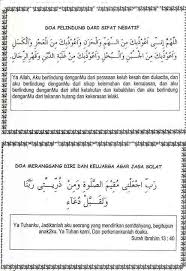 DOA PELINDUNG DARI SIFAT NEGATIF
اللَّهُمَّ إِنِّي أَعُوذُبِكَ مِنَ الْهَمِّ وَالْحَزَنِ وَأَعُوذُبِكَ مِنَ الْعَجْزِ وَالْكَسَلِ
وَأَعُوذُبِكَ مِنَ الْجُبْنِ وَالْبُخْلِ وَأَعُوذُبِكَ مِنْ غَلَبَةِ الدَّيْنِ وَقَهْرِ الرِّجَالِ
Ya Allah, Aku berlindung denganMu daripada keluh kesah dan dukacita, dan
aku berlindung denganMu dari sikap kelemahan dan kemalasan, dan aku
berlindung denganMu dari sifat pengecut dan kedekut, dan aku berlindung
denganMu dari tekanan hutang dan kekerasan lelaki.
DOA MERANGSANG DIRI DAN KELUARGA AGAR JAGA SOLAT
رَبِّ اجْعَلْنِي مُقِيمَ الصَّلَوةِ وَمِنْ ذُرِّيَّتِي رَبَّنَا
وَتَقَبَّلْ دُعَاءِ
Ya Tuhanku, Jadikanlah aku orang yang mendirikan sembahyang, begitupun
anakku. Ya Tuhan kami, Dan perkenankanlah doaku.
Surah Ibrahim 13 : 40